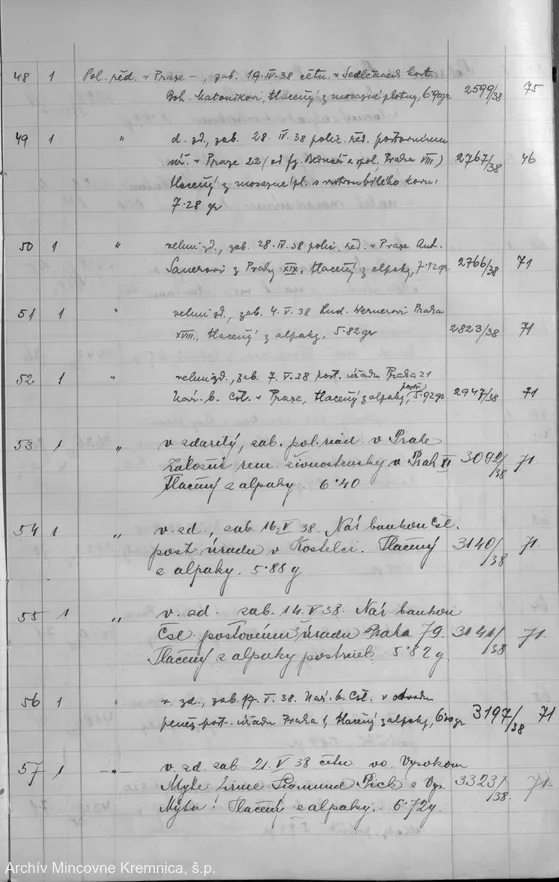 48 1 Pol. řed. v Praze –, zab. 19.IV.38 četn. v Sedlčanech host.
Boh. Matouškovi, tlačený z mosazné plotny, 6.90gr 2599/38 75
49 1 " d. zd, zab. 28. IV. 38 polic. řed. poštovnímu
úř. v Praze 22/ od fy. a spol. Praha VIII) 2767/38 46
tlačený z mosazné pl. s kovu:
7.28 gr
50 1 " velmi zd., zab. 28.IV.38 polic. řed. v Praze Ant.
Sauerovi z Prahy XIX, tlačený z alpaky, 7.12gr 2766/38 71
51 1 " velmi zd., zab. 4. V. 38 Lud. Wernerovi Praha
XVIII., tlačený z alpaky, 5.82gr 2823/38 71
52 1 " velmi zd., zab. 7. V. 38 pošt. úřadu Praha 21
Nár. b. Čsl. v Praze, tlačený z alpaky, 5.92gr 2947/38 71
53 1 " v. zdařilý, zab. pol. riad v Prahe
Záložně rem živnostensky v Prah XI 3092/38 71
Tlačený z alpaky. 6.40
54 1 " v. zd., zab. 16.V 38. Nár bankou Čsl.
post úradu v Kostelci. Tlačený 3140/38 71.
z alpaky. 5.88 g
55 1 " v. zd. zab. 14.V.38. Nár bankou
Čsl. poštovému úradu Praha 79. 3141/38 71.
Tlačený z alpaky postrieb. 5.82 g.
56 1 " v. zd., zab. 17. V. 38. Nár. b. Čsl. v obvodu
pošt. úřadu Praha 1, tlačený z alpaky, 3197/38 71
57 1 –"– v. zd zab. 21. V 38 četn vo Vysokom
Mýte firme Sigmund Pick z Vys. 3323/38. 71.
Mýta: Tlačený z alpaky. 6.72 g.
Archív Mincovne Kremnica, š.p.